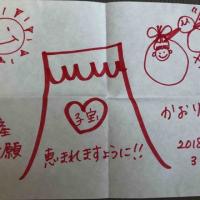 子宝
恵まれますように!!
産
願
かおり
2018
3